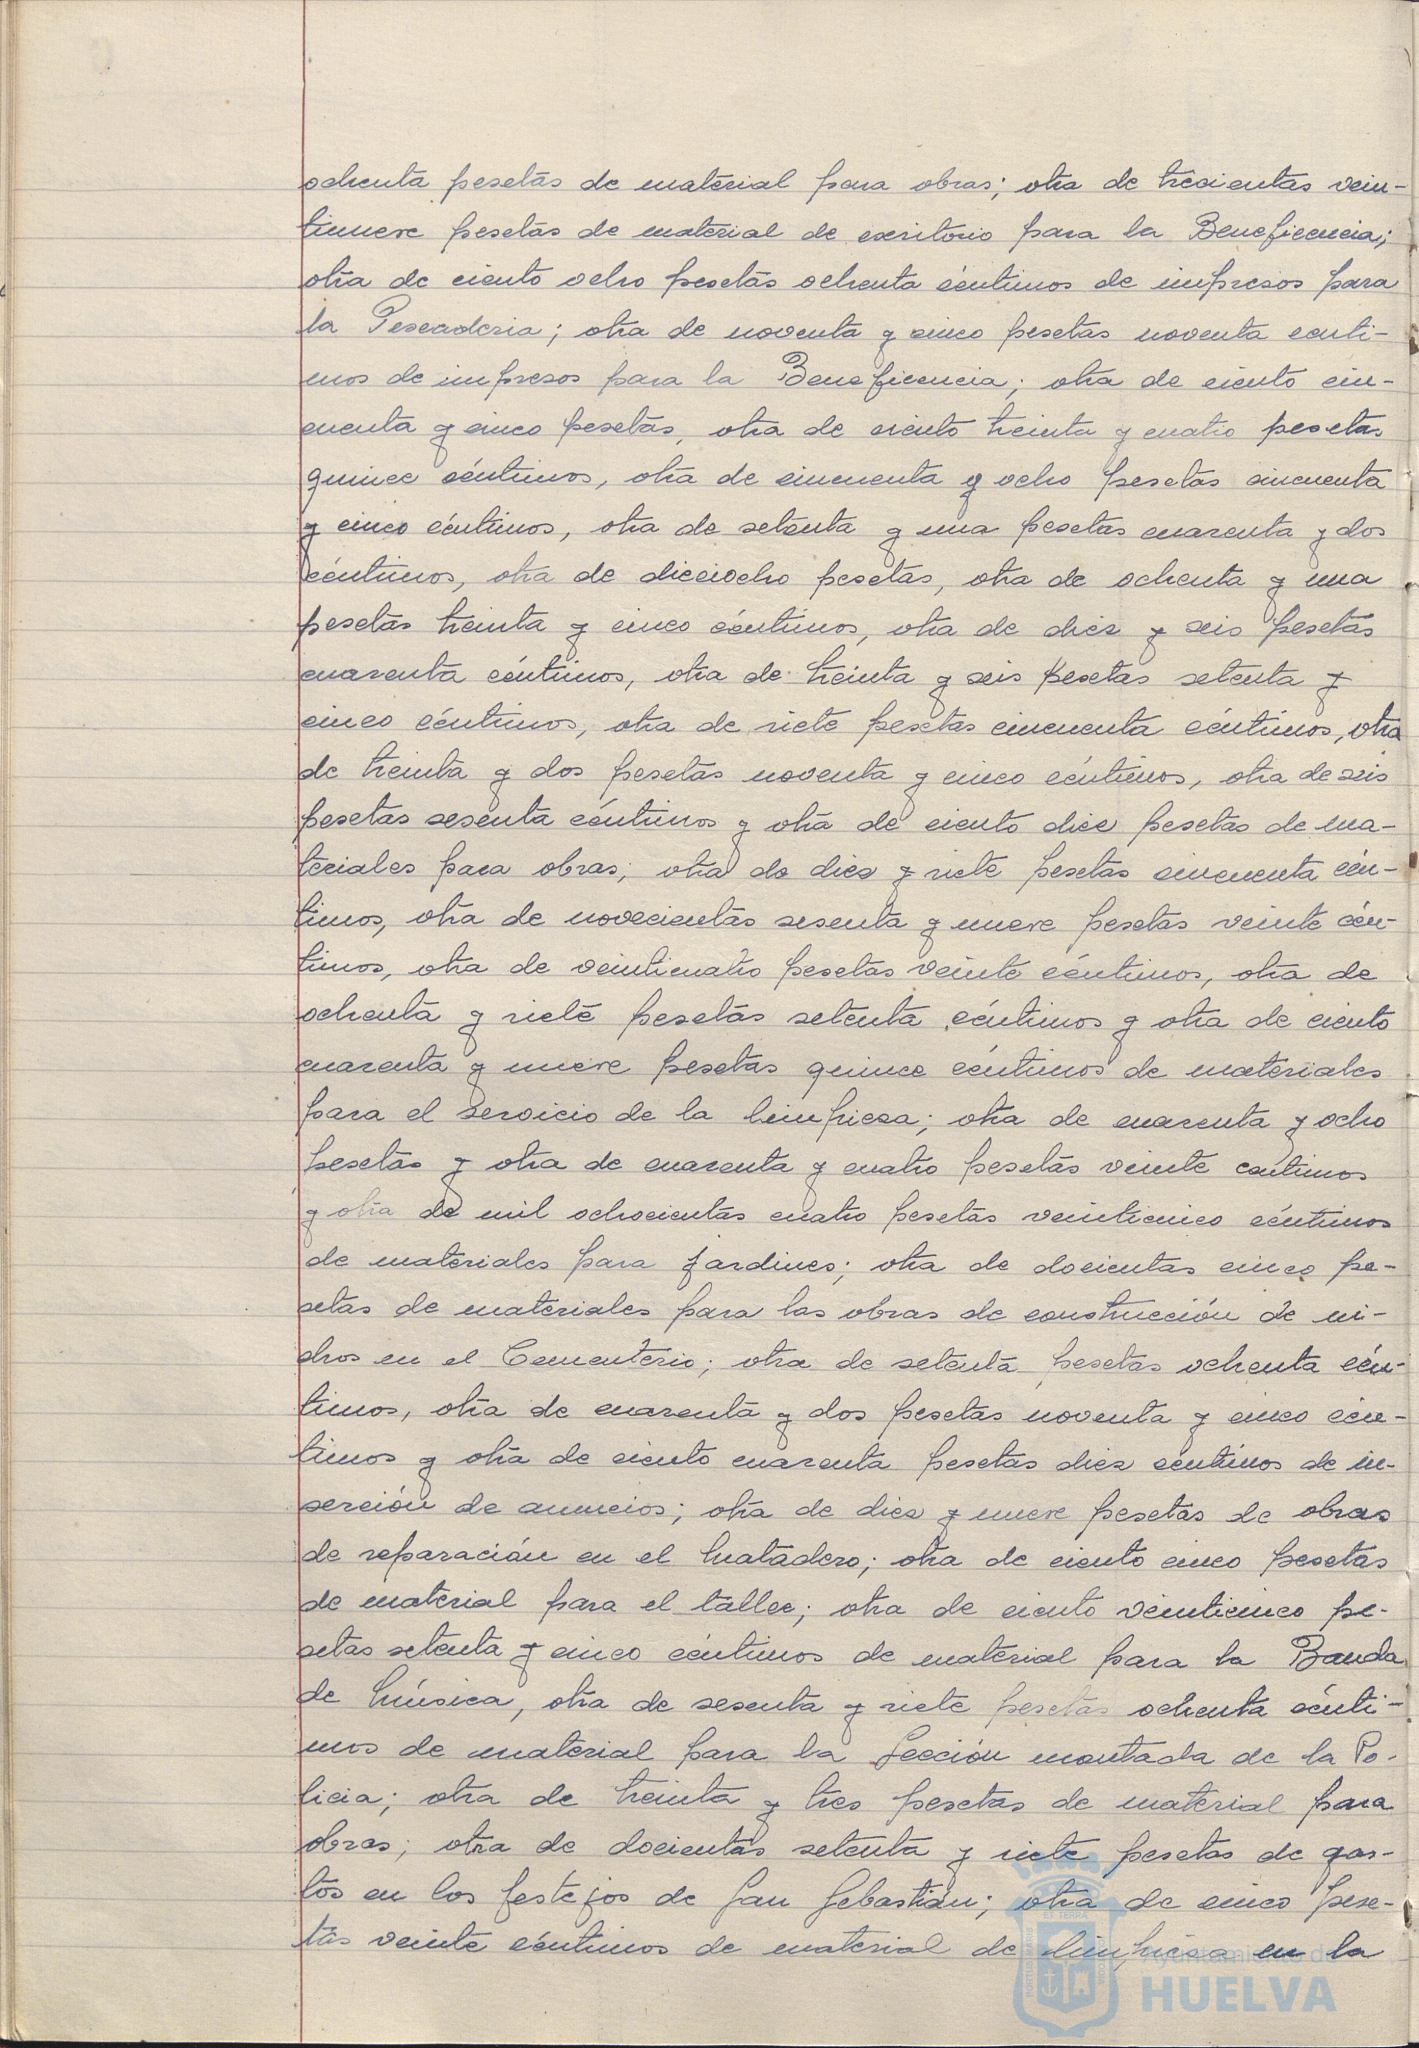 ochenta pesetas de material para obras; otra de trecientas vein-
tinueve pesetas de material de escritorio para la Beneficencia;
otra de ciento ocho pesetas ochenta céntimos de impresos para
la Pescaderia; otra de noventa y cinco pesetas noventa centi-
mos de impresos para la Beneficencia; otra de ciento cin-
cuenta y cinco pesetas, otra de ciento treinta y cuatro pesetas
quince céntimos, otra de cincuenta y ocho pesetas cincuenta
y cinco céntimos, otra de setenta y una pesetas cuarenta y dos
céntimos, otra de dieciocho pesetas, otra de ochenta y una
pesetas treinta y cinco céntimos, otra de diez y seis pesetas
cuarenta céntimos, otra de treinta y seis pesetas setenta y
cinco céntimos, otra de siete pesetas cincuenta céntimos, otra
de treinta y dos pesetas noventa y cinco céntimos, otra de seis
pesetas sesenta céntimos y otra de ciento diez pesetas de ma-
teriales para obras; otra de diez y siete pesetas cincuenta cén-
timos, otra de novecientas sesenta y nueve pesetas veinte cén-
timos, otra de veinticuatro pesetas veinte céntimos, otra de
ochenta y siete pesetas setenta céntimos y otra de ciento
cuarenta y nueve pesetas quince céntimos de materiales
para el servicio de la limpieza; otra de cuarenta y ocho
pesetas y otra de cuarenta y cuatro pesetas veinte céntimos
y otra de mil ochocientas cuatro pesetas veinticinco céntimos
de materiales para jardines; otra de docientas cinco pe-
setas de materiales para las obras de construcción de ni-
chos en el Cementerio; otra de setenta pesetas ochenta cén-
timos, otra de cuarenta y dos pesetas noventa y cinco cén-
timos y otra de ciento cuarenta pesetas diez céntimos de in-
serción de anuncios; otra de diez y nueve pesetas de obras
de reparación en el Matadero; otra de ciento cinco pesetas
de material para el taller; otra de ciento veinticinco pe-
setas setenta y cinco céntimos de material para la Banda
de Música, otra de sesenta y siete pesetas ochenta cénti-
mos de material para la Sección montada de la Po-
licia; otra de treinta y tres pesetas de material para
obras; otra de docientas setenta y siete pesetas de gas-
tos en los festejos de San Sebastián; otra de cinco pese-
tas veinte céntimos de material de limpieza en la
Ayuntamiento de
HUELVA